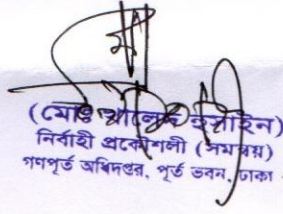 (মোঃ খালেদ হুসাইন)
নির্বাহী প্রকৌশলী (সমন্বয়)
গণপূর্ত অধিদপ্তর, পূর্ত ভবন, ঢাকা